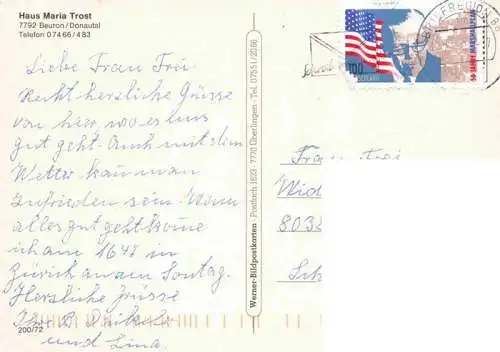 Haus Maria Trost
7792 Beuron/Donautal
Telefon 07466/483
Liebe Frau Frei
Recht herzliche Grüsse
von hier, wo es uns
gut geht. Auch mit dem
Wetter kan man
zufrieden sein. Wenn
alles gut geht kome
ich am 16 48 in
Zürich an am Sontag.
Herzliche Grüsse
Ihre B.
und Lina.
200/72
Werner-Bildpostkarten Postfach 1623 · 7770 Überlingen · Tel. 07551/2086
100
50 JAHRE MARSHALLPLAN
Frau Frei
Wid
803
Sch